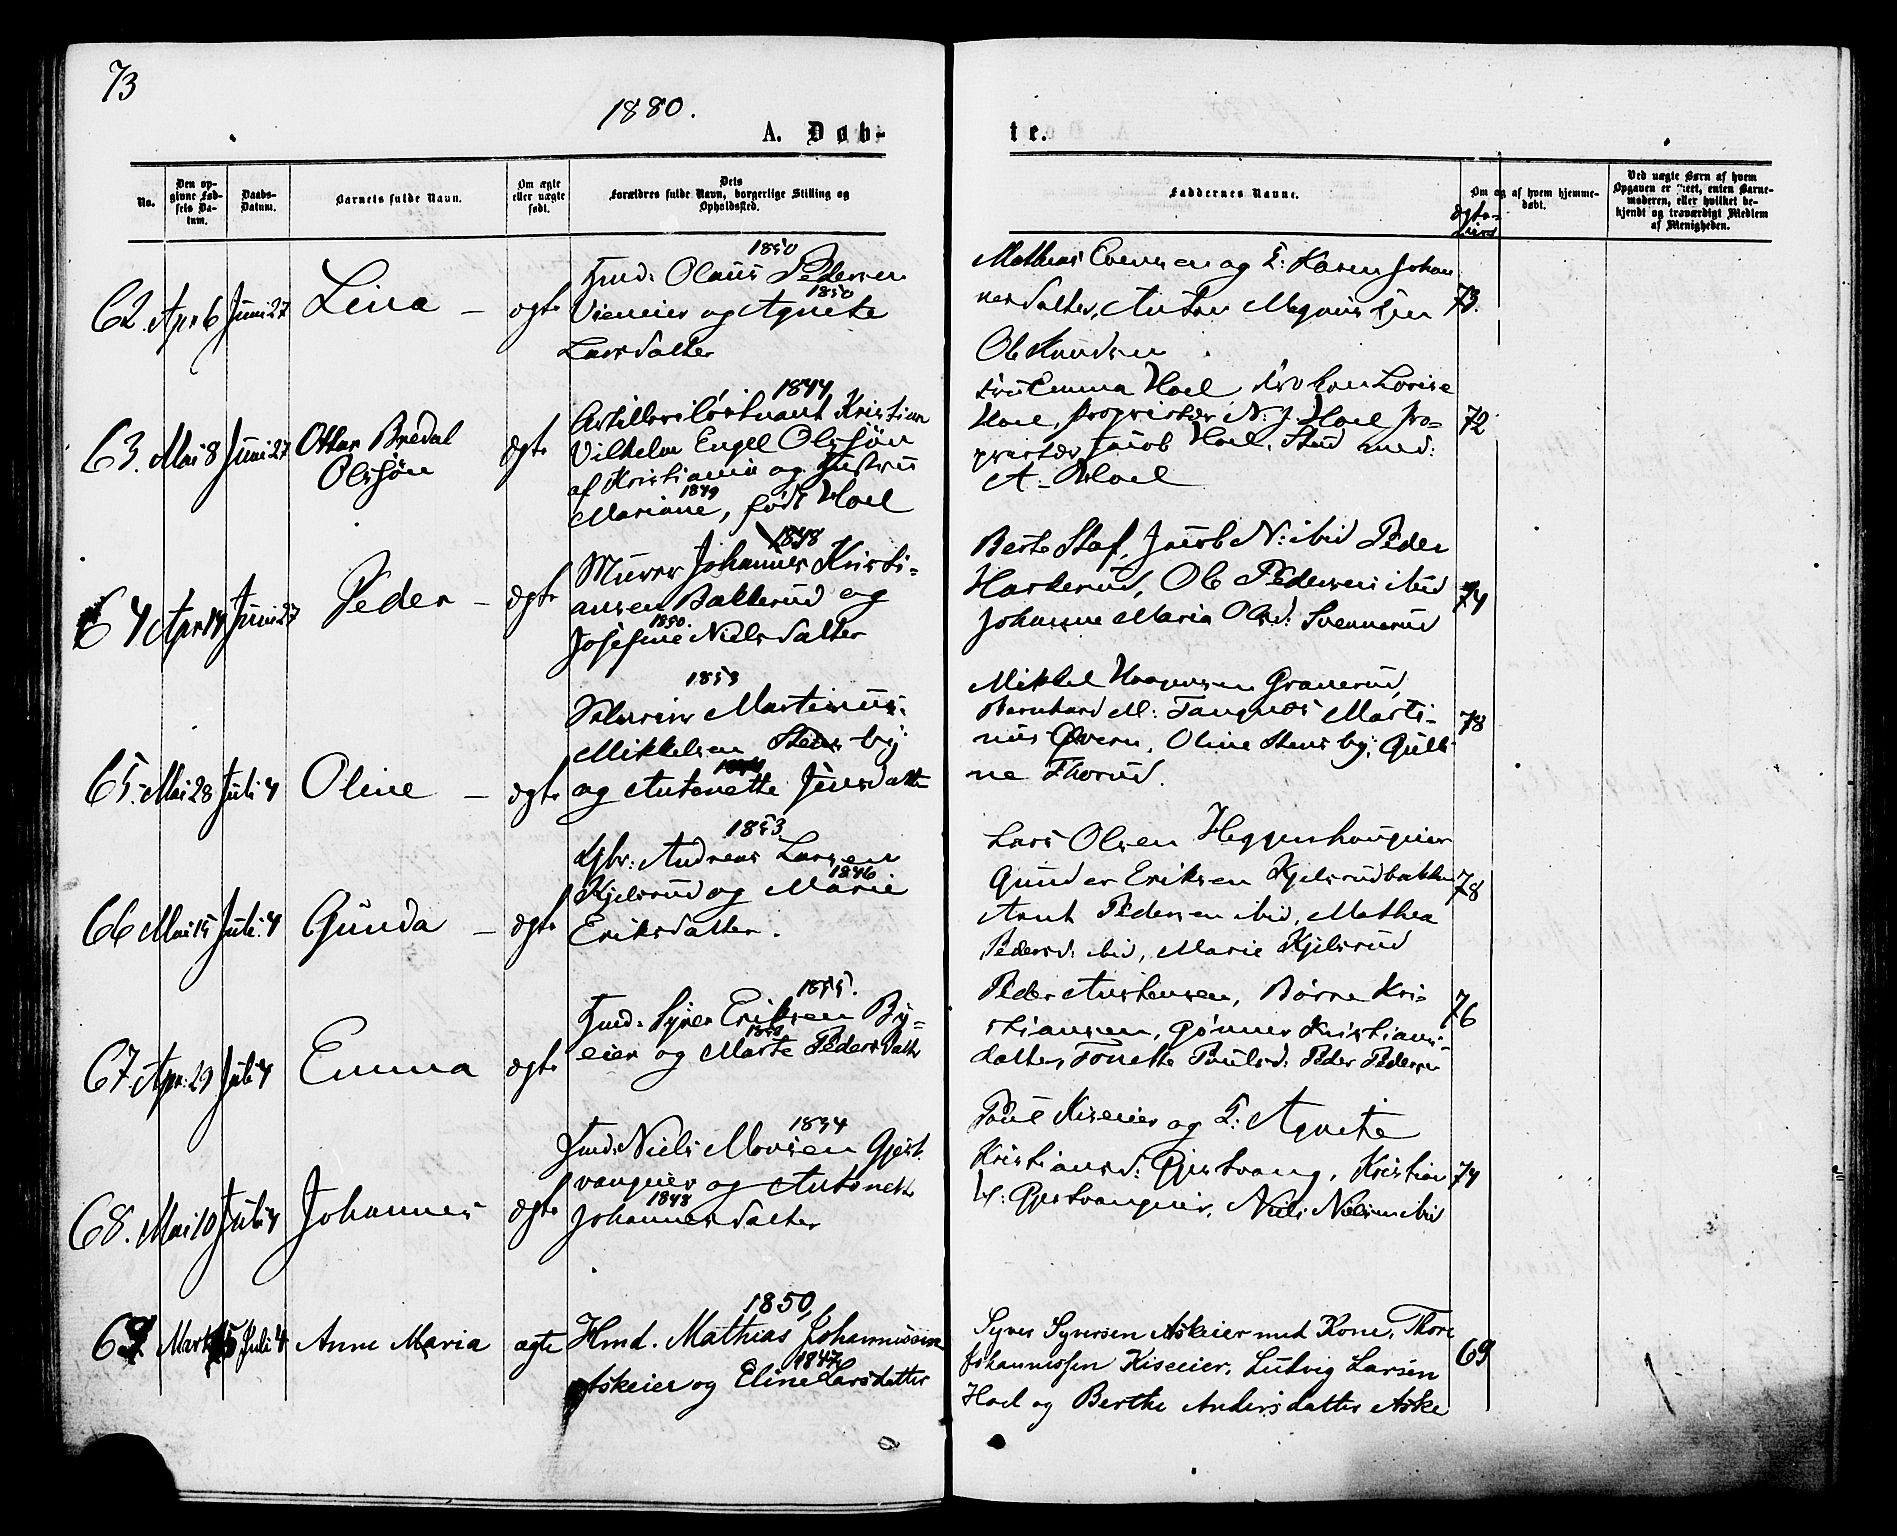 73
1880.
A. Døb-
te.
No.
Den op-
givne Fød-
sels Da-
tum.
Daabs-
Datum.
Barnets fulde Navn.
Om ægte
eller uægte
født.
Dets
Forældres fulde Navn, borgerlige Stilling og
Opholdssted.
Faddernes Navne.
ægte-
Om og af hvem hjemme-
døbt.
Ved uægte Børn af hvem
Opgaven er skeet, enten Barne-
moderen, eller hvilket be-
kjendt og troværdigt Medlem
af Menigheden.
1850
62. Apr 6 Juni 27 Lina – ægte
Hmd: Olaus Pedersen
1850
og Agnete
Larsdatter
Mathias Evensen og F: Karen Johan
nesdatter, Anton Magnus
73.
Ole Knudsen
1844
63. Mai 8 Juni 27 Ottar Bredal
Olsjøn
ægte
Artillerilöitnant Kristian
Vilhelm Engel Olsjøn
af Kristiania og Hustru
1849
Mariane, født Hoel
Fru Emma Hoel, Lovise
Hoel, proprietær N. J. Hoel, pro-
prietær Jacob Hoel, Stud med:
A. Hoel
72
1848
64 Apr 14 Juni 27 Peder – ægte
Murer Johannes Kristi-
ansen Bakkerud og
1850.
Josefine Nielsdatter
Berte Staf, Jacob N: ibid Peder
Harkerud, Ole Pedersen ibid
Johanne Maria Olsd: Svennerud
74
1853
65. Mai 28 Juli 4 Oline – ægte
Martinus
Mikkelsen Stensby
og Antonette Jensdatter
Mikkel Haagensen Granerud,
Bernhard M: Tangnes Marti-
nus Øvern, Oline Stensby, Guli-
ne Thorud.
78
1853
66 Mai 15 Juli 4 Gunda – ægte
Gbr: Andreas Larsen
1846
Kjelsrud og Marie
Eriksdatter.
Lars Olsen Heggenhougeier
Gunder Eriksen Kjelsrudbakken
Arnt Pedersen ibid, Mathea
Pedersd: ibid, Marie Kjelsrud
78
1855.
67. Apr: 29 Juli 4 Emma ægte
Hmd: Syver Eriksen By-
eier og Marte Pedersdatter
Peder Austensen, Börre Kri-
stiansen, Gönner Kristians-
datter, Tonette Paulsd: Peder Pedersen
76
1854
68. Mai 10 Juli 4 Johannes ægte
Hmd: Niels Moursen Gjest-
vangeier og Antonette
1848
Johannesdatter
Paul Kiseeier og F: Agnete
Kristiansd: Gjestvang, Kristian
H: Gjestvangeier, Niels Nielsen ibid
74
1850
69 Marts 15 Juli 4 Anne Maria ægte
Hmd. Mathias Johannessen
1847
Askeier og Eline Larsdatter
Syver Syversen Askeier med Kone, Thore
Johannessen Kiseeier, Ludvig Larsen
Hoel og Berthe Andersdatter Aske
69